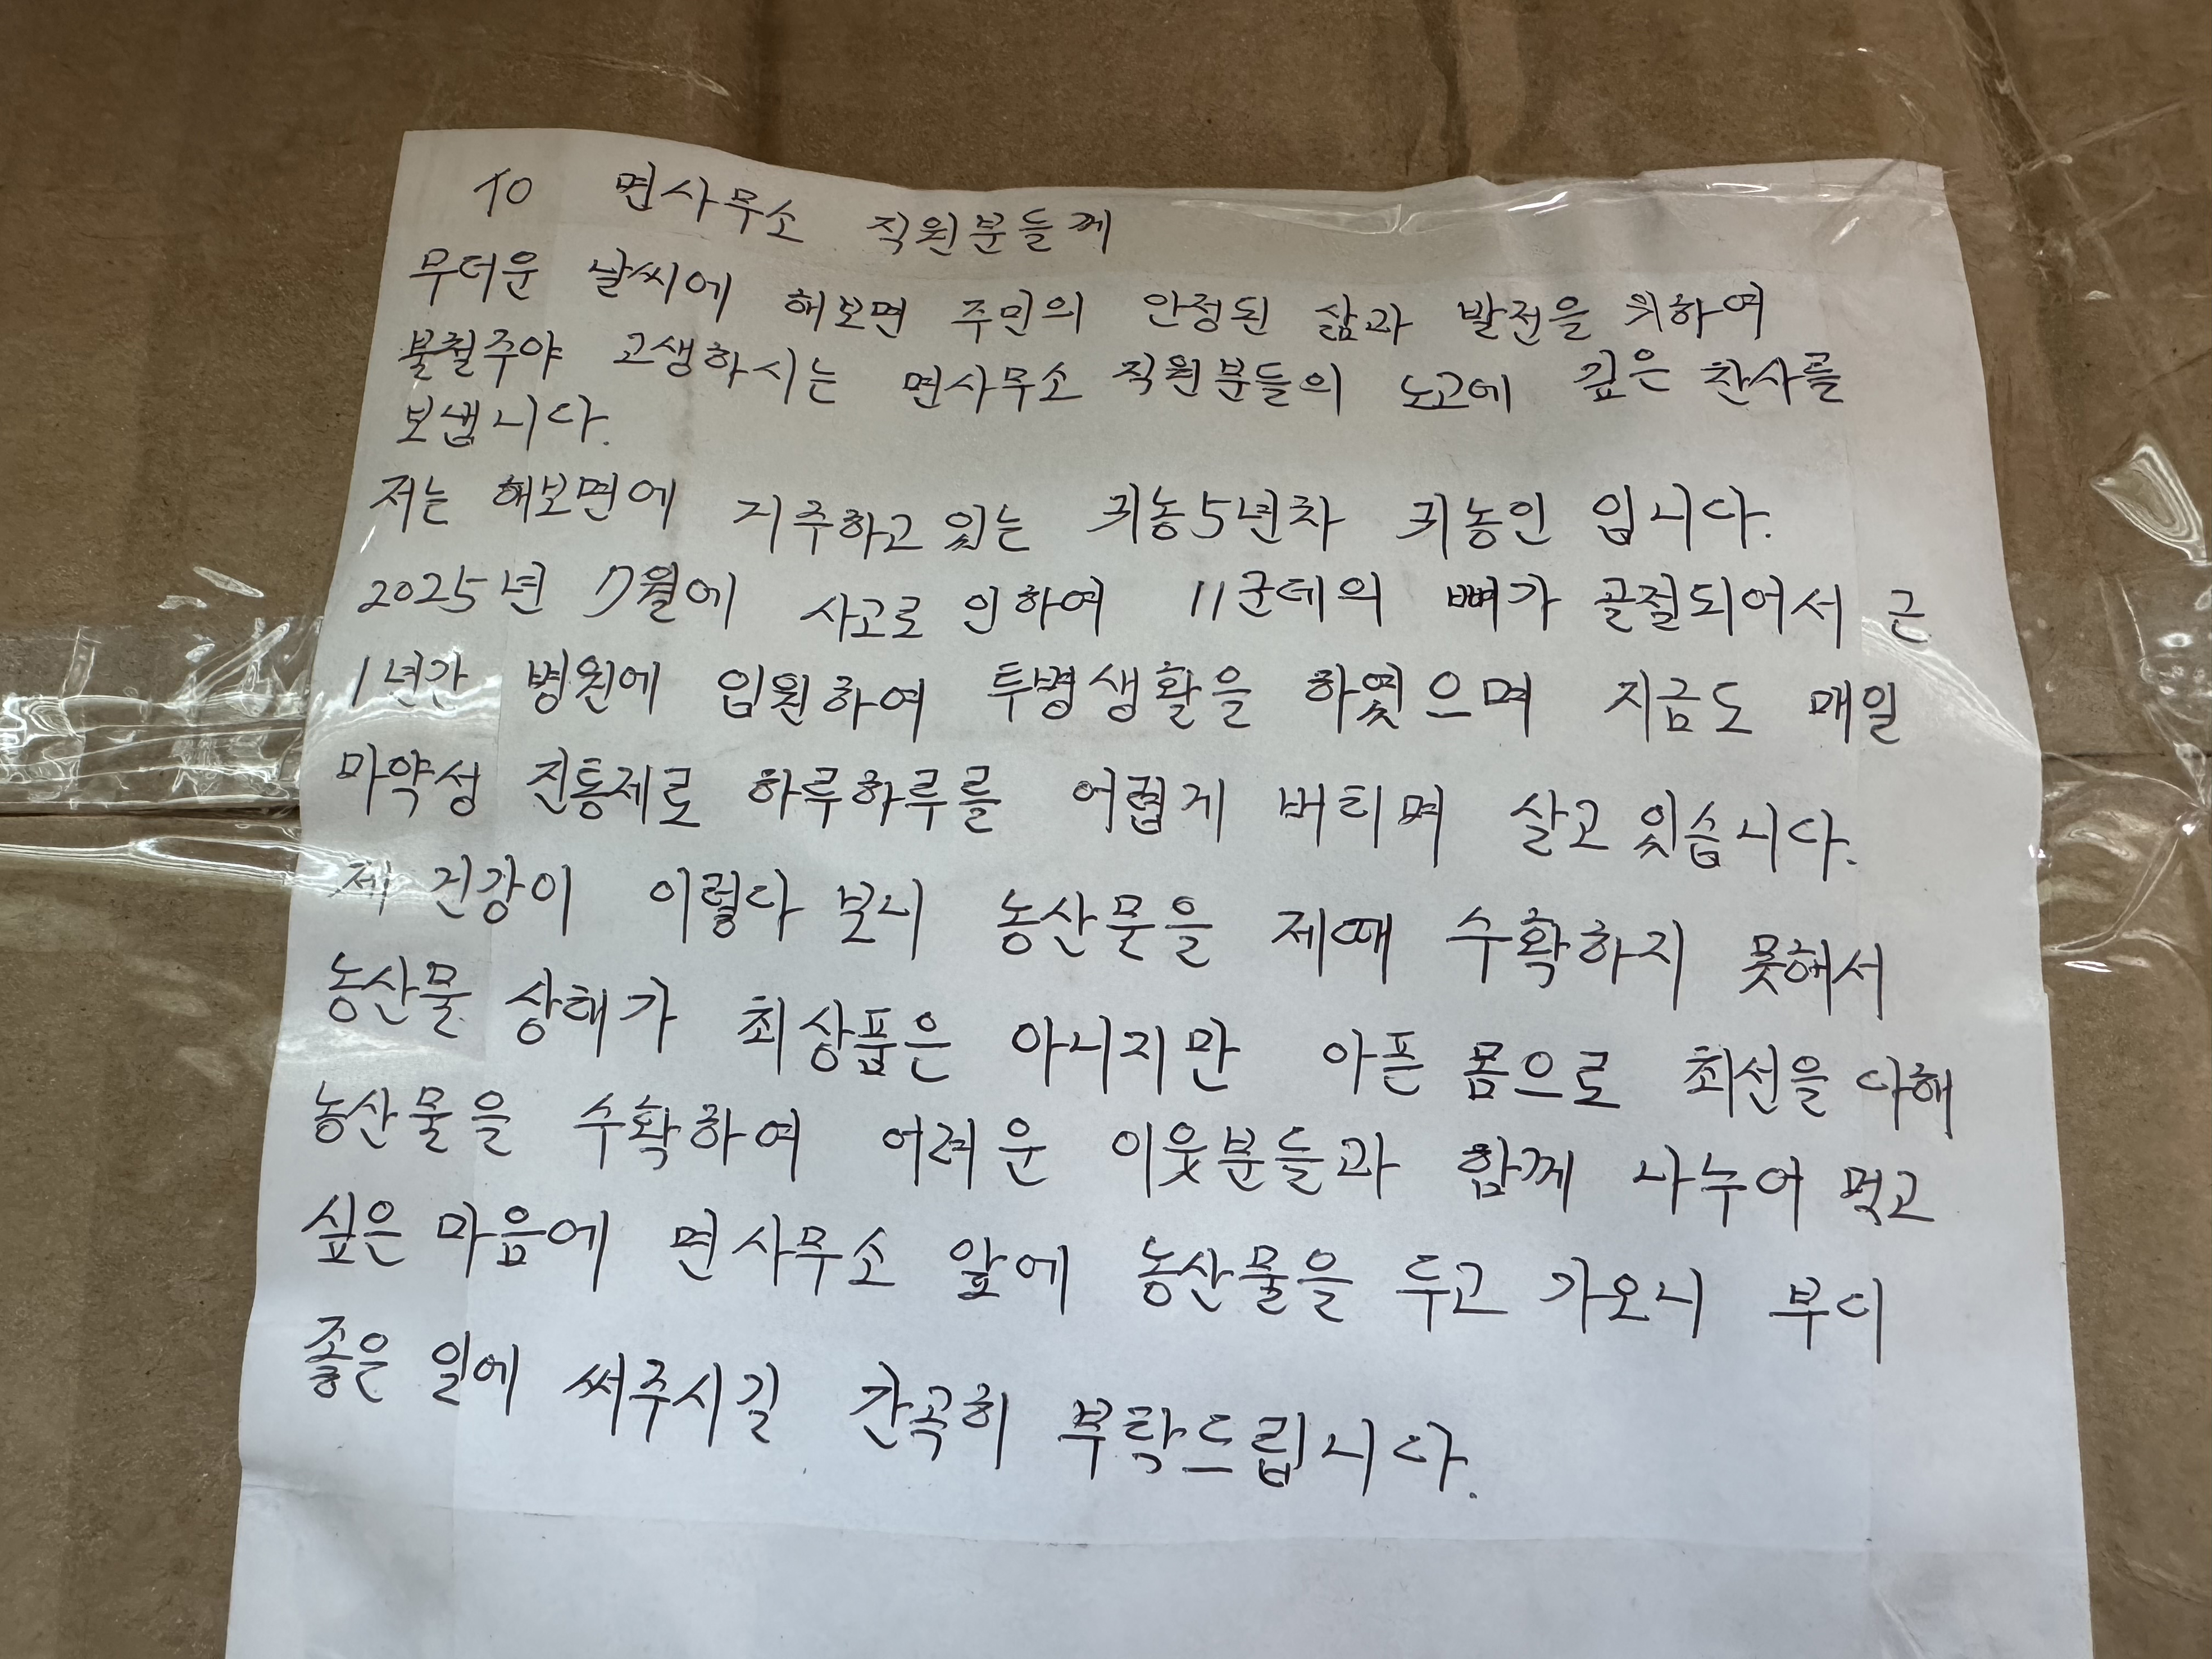 To 면사무소 직원분들께
무더운 날씨에 해보면 주민의 안정된 삶과 발전을 위하여
불철주야 고생하시는 면사무소 직원분들의 노고에 깊은 찬사를
보냅니다.
저는 해보면에 거주하고 있는 귀농5년차 귀농인 입니다.
2025년 7월에 사고로 인하여 11군데의 뼈가 골절되어서 근
1년간 병원에 입원하여 투병생활을 하였으며 지금도 매일
마약성 진통제로 하루하루를 어렵게 버티며 살고 있습니다.
제 건강이 이렇다 보니 농산물을 제때 수확하지 못해서
농산물 상태가 최상품은 아니지만 아픈 몸으로 최선을 다해
농산물을 수확하여 어려운 이웃분들과 함께 나누어 먹고
싶은 마음에 면사무소 앞에 농산물을 두고 가오니 부디
좋은 일에 써주시길 간곡히 부탁드립니다.